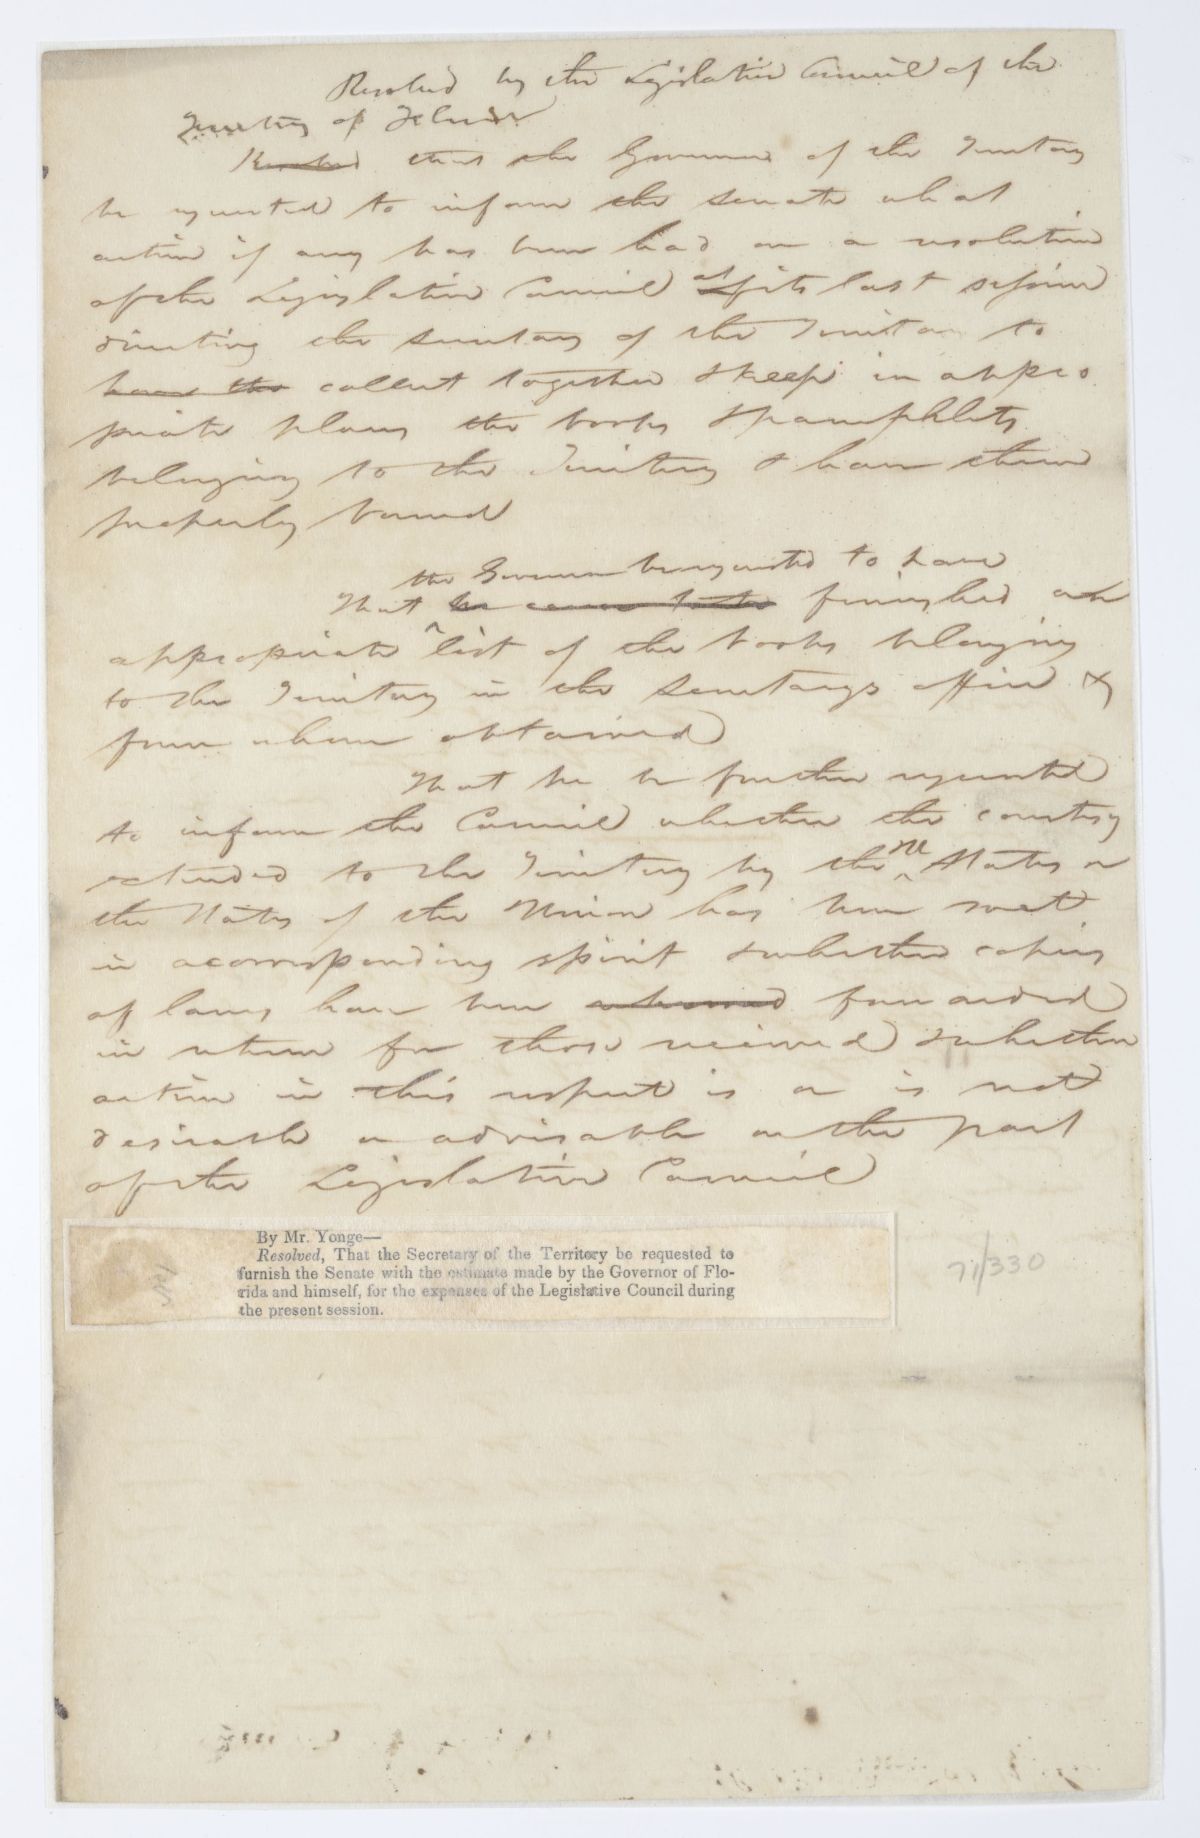 Resolved by the Legislative Council of the
Territory of Florida
Resolved that the Governor of the Territory
be requested to inform the Senate what
action if any has been had on a resolution
of the Legislative Council at its last session
directing the Secretary of the Territory to
have the collect together & keep in appro
priate places the books & pamphlets
belonging to the Territory & have them
properly bound
the Governor be requested to have
That furnished an
appropriate list of the books belonging
to the Territory in the Secretarys office &
from whom obtained
That he be further requested
to inform the Council whether the courtesy
extended to the Territory by the States or
the States of the Union has been met
in a corresponding spirit & whether copies
of laws have been forwarded
in return for those received & whether
action in this respect is or is not
desirable or advisable on the part
of the Legislative Council
By Mr. Yonge—
Resolved, That the Secretary of the Territory be requested to
furnish the Senate with the estimate made by the Governor of Flo-
rida and himself, for the expenses of the Legislative Council during
the present session.
71/330